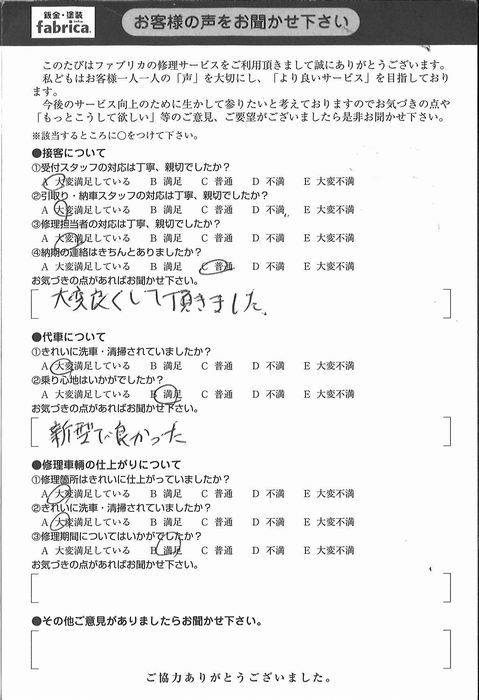 鈑金・塗装
fabrica.
お客様の声をお聞かせ下さい
このたびはファブリカの修理サービスをご利用頂きまして誠にありがとうございます。
私どもはお客様一人一人の「声」を大切にし、「より良いサービス」を目指しており
ます。
今後のサービス向上のために生かして参りたいと考えておりますのでお気づきの点や
「もっとこうして欲しい」等のご意見、ご要望がございましたら是非お聞かせ下さい。
※該当するところに○をつけて下さい。
●接客について
①受付スタッフの対応は丁寧、親切でしたか?
A 大変満足している B 満足 C 普通 D 不満 E 大変不満
②引取り・納車スタッフの対応は丁寧、親切でしたか?
A 大変満足している B 満足 C 普通 D 不満 E 大変不満
③修理担当者の対応は丁寧、親切でしたか?
A 大変満足している B 満足 C 普通 D 不満 E 大変不満
④納期の連絡はきちんとありましたか?
A 大変満足している B 満足 C 普通 D 不満 E 大変不満
お気づきの点があればお聞かせ下さい。
大変良くして頂きました.
●代車について
①きれいに洗車・清掃されていましたか?
A 大変満足している B 満足 C 普通 D 不満 E 大変不満
②乗り心地はいかがでしたか?
A 大変満足している B 満足 C 普通 D 不満 E 大変不満
お気づきの点があればお聞かせ下さい。
新型で良かった
●修理車輌の仕上がりについて
①修理箇所はきれいに仕上がっていましたか?
A 大変満足している B 満足 C 普通 D 不満 E 大変不満
②きれいに洗車・清掃されていましたか?
A 大変満足している B 満足 C 普通 D 不満 E 大変不満
③修理期間についてはいかがでしたか?
A 大変満足している B 満足 C 普通 D 不満 E 大変不満
お気づきの点があればお聞かせ下さい。
●その他ご意見がありましたらお聞かせ下さい。
ご協力ありがとうございました。